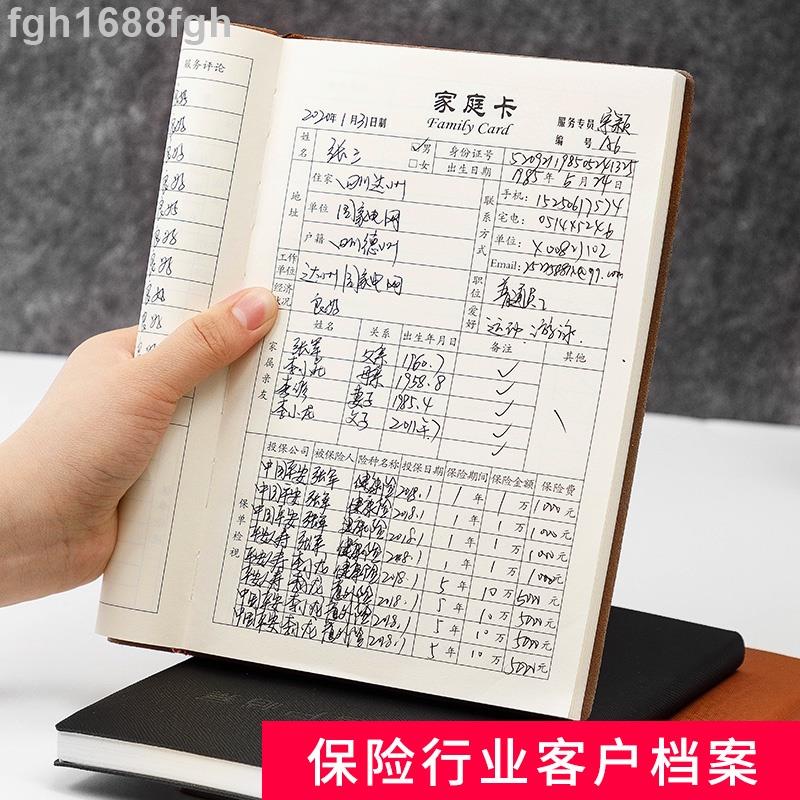 fgh1688fgh
服务评论
良好
良好
良好
良好
良好
良好
良好
良好
良好
良好
家庭卡
Family Card
2020年1月31日制
服务专员
编 号 A6
姓名 张三 ✓男 □女 身份证号
出生日期 1985年5月24日
地址 住家 四川达州
单位 国家电网
户籍 四川德州
联系方式 手机: 15250617574
宅电:
单位: X00827102
Email:
工作单位 达州国家电网
职位 普通员工
经济状况 良好
爱好 运动 游泳
家属亲友 姓名 关系 出生年月日 备注 其他
张军 父亲 1960.7 ✓
母亲 1958.8 ✓
妻子 1985.4 ✓
李小龙 父子 2011年7 ✓
✓
保单检视 投保公司 被保险人 险种名称 投保日期 保险期间 保险金额 保险费
中国平安 张军 健康险 2018.1 1年 1万 1000元
中国平安 张军 健康险 2018.1 1年 1万 1000元
中国平安 张军 健康险 2018.1 1年 1万 1000元
张军 健康险 2018.1 1年 1万 1000元
李小龙 健康险 2018.1 5年 10万 5000元
李小龙 意外险 2018.1 5年 10万 5000元
中国平安 李小龙 意外险 2018.1 5年 10万 5000元
中国平安 李小龙 意外险 2018.1 5年 10万 5000元
保险行业客户档案